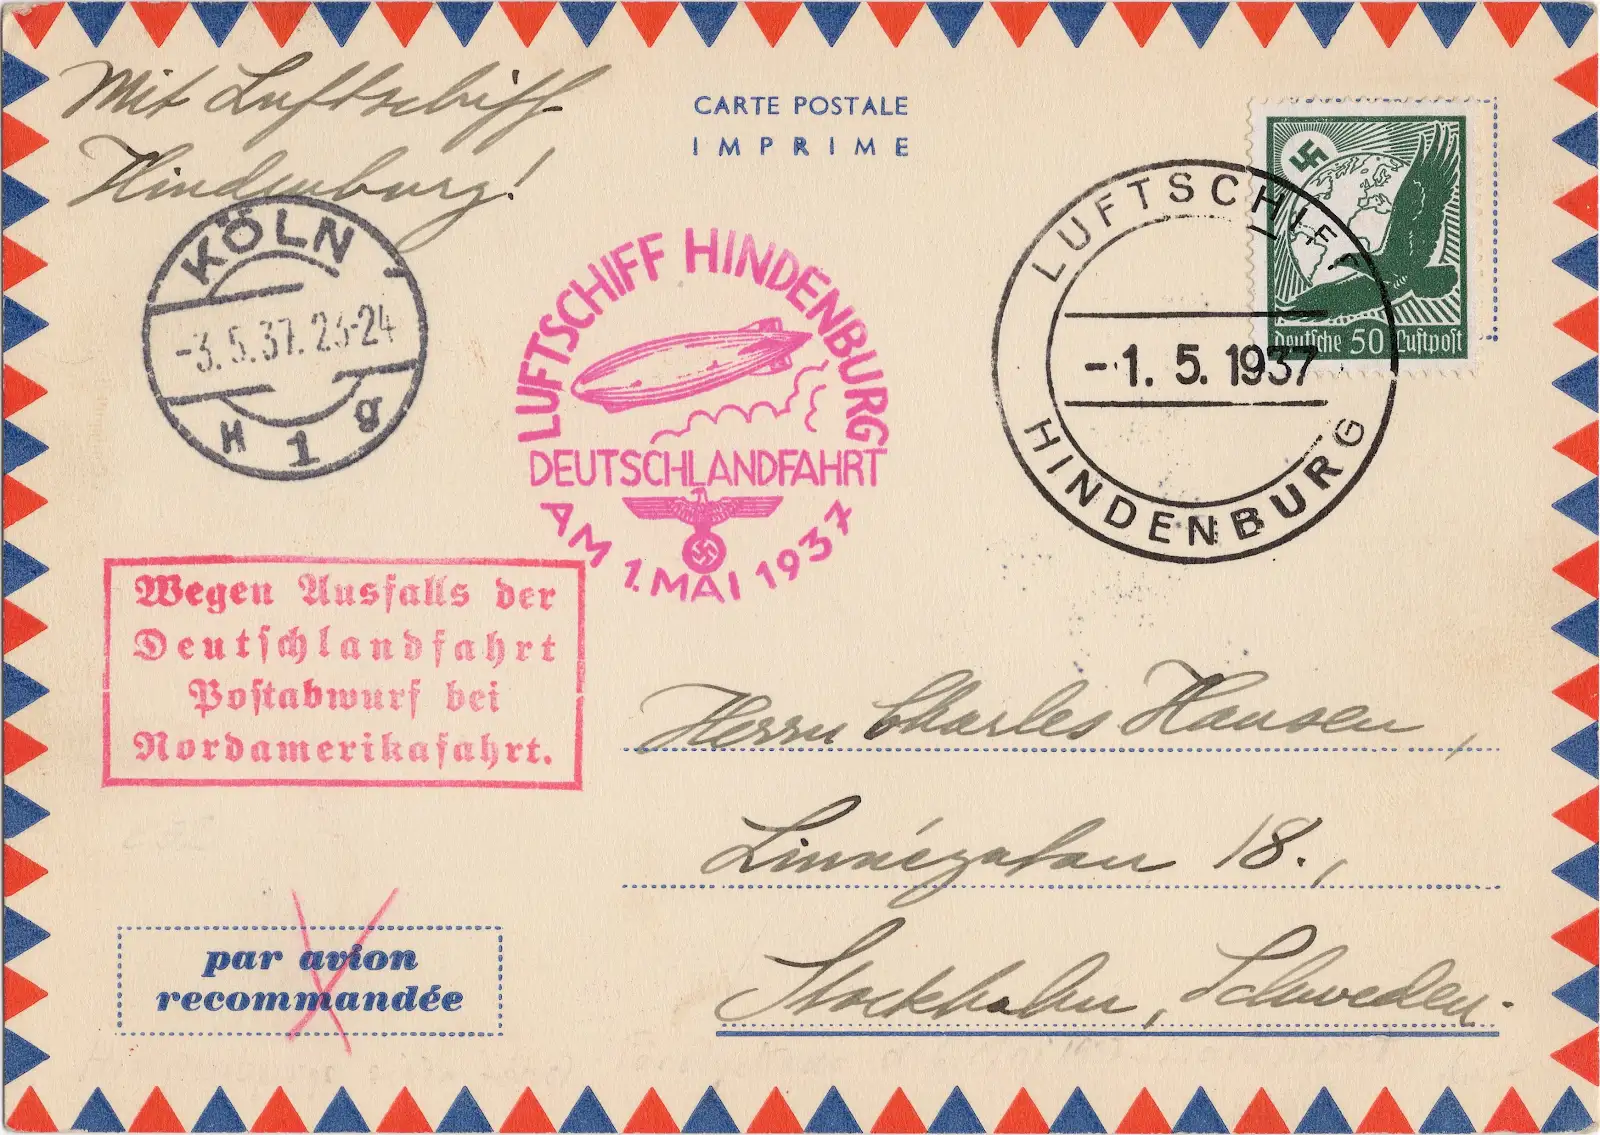 Mit Luftschiff
Hindenburg!
CARTE POSTALE
IMPRIME
deutsche 50 Luftpost
LUFTSCHIFF
-1. 5. 1937
HINDENBURG
KÖLN
-3.5.37.23-24
H 1 g
LUFTSCHIFF HINDENBURG
DEUTSCHLANDFAHRT
AM 1. MAI 1937
Wegen Ausfalls der
Deutschlandfahrt
Postabwurf bei
Nordamerikafahrt.
Herrn Charles Hansen,
Linnégatan 18.,
Stockholm, Schweden.
par avion
recommandée